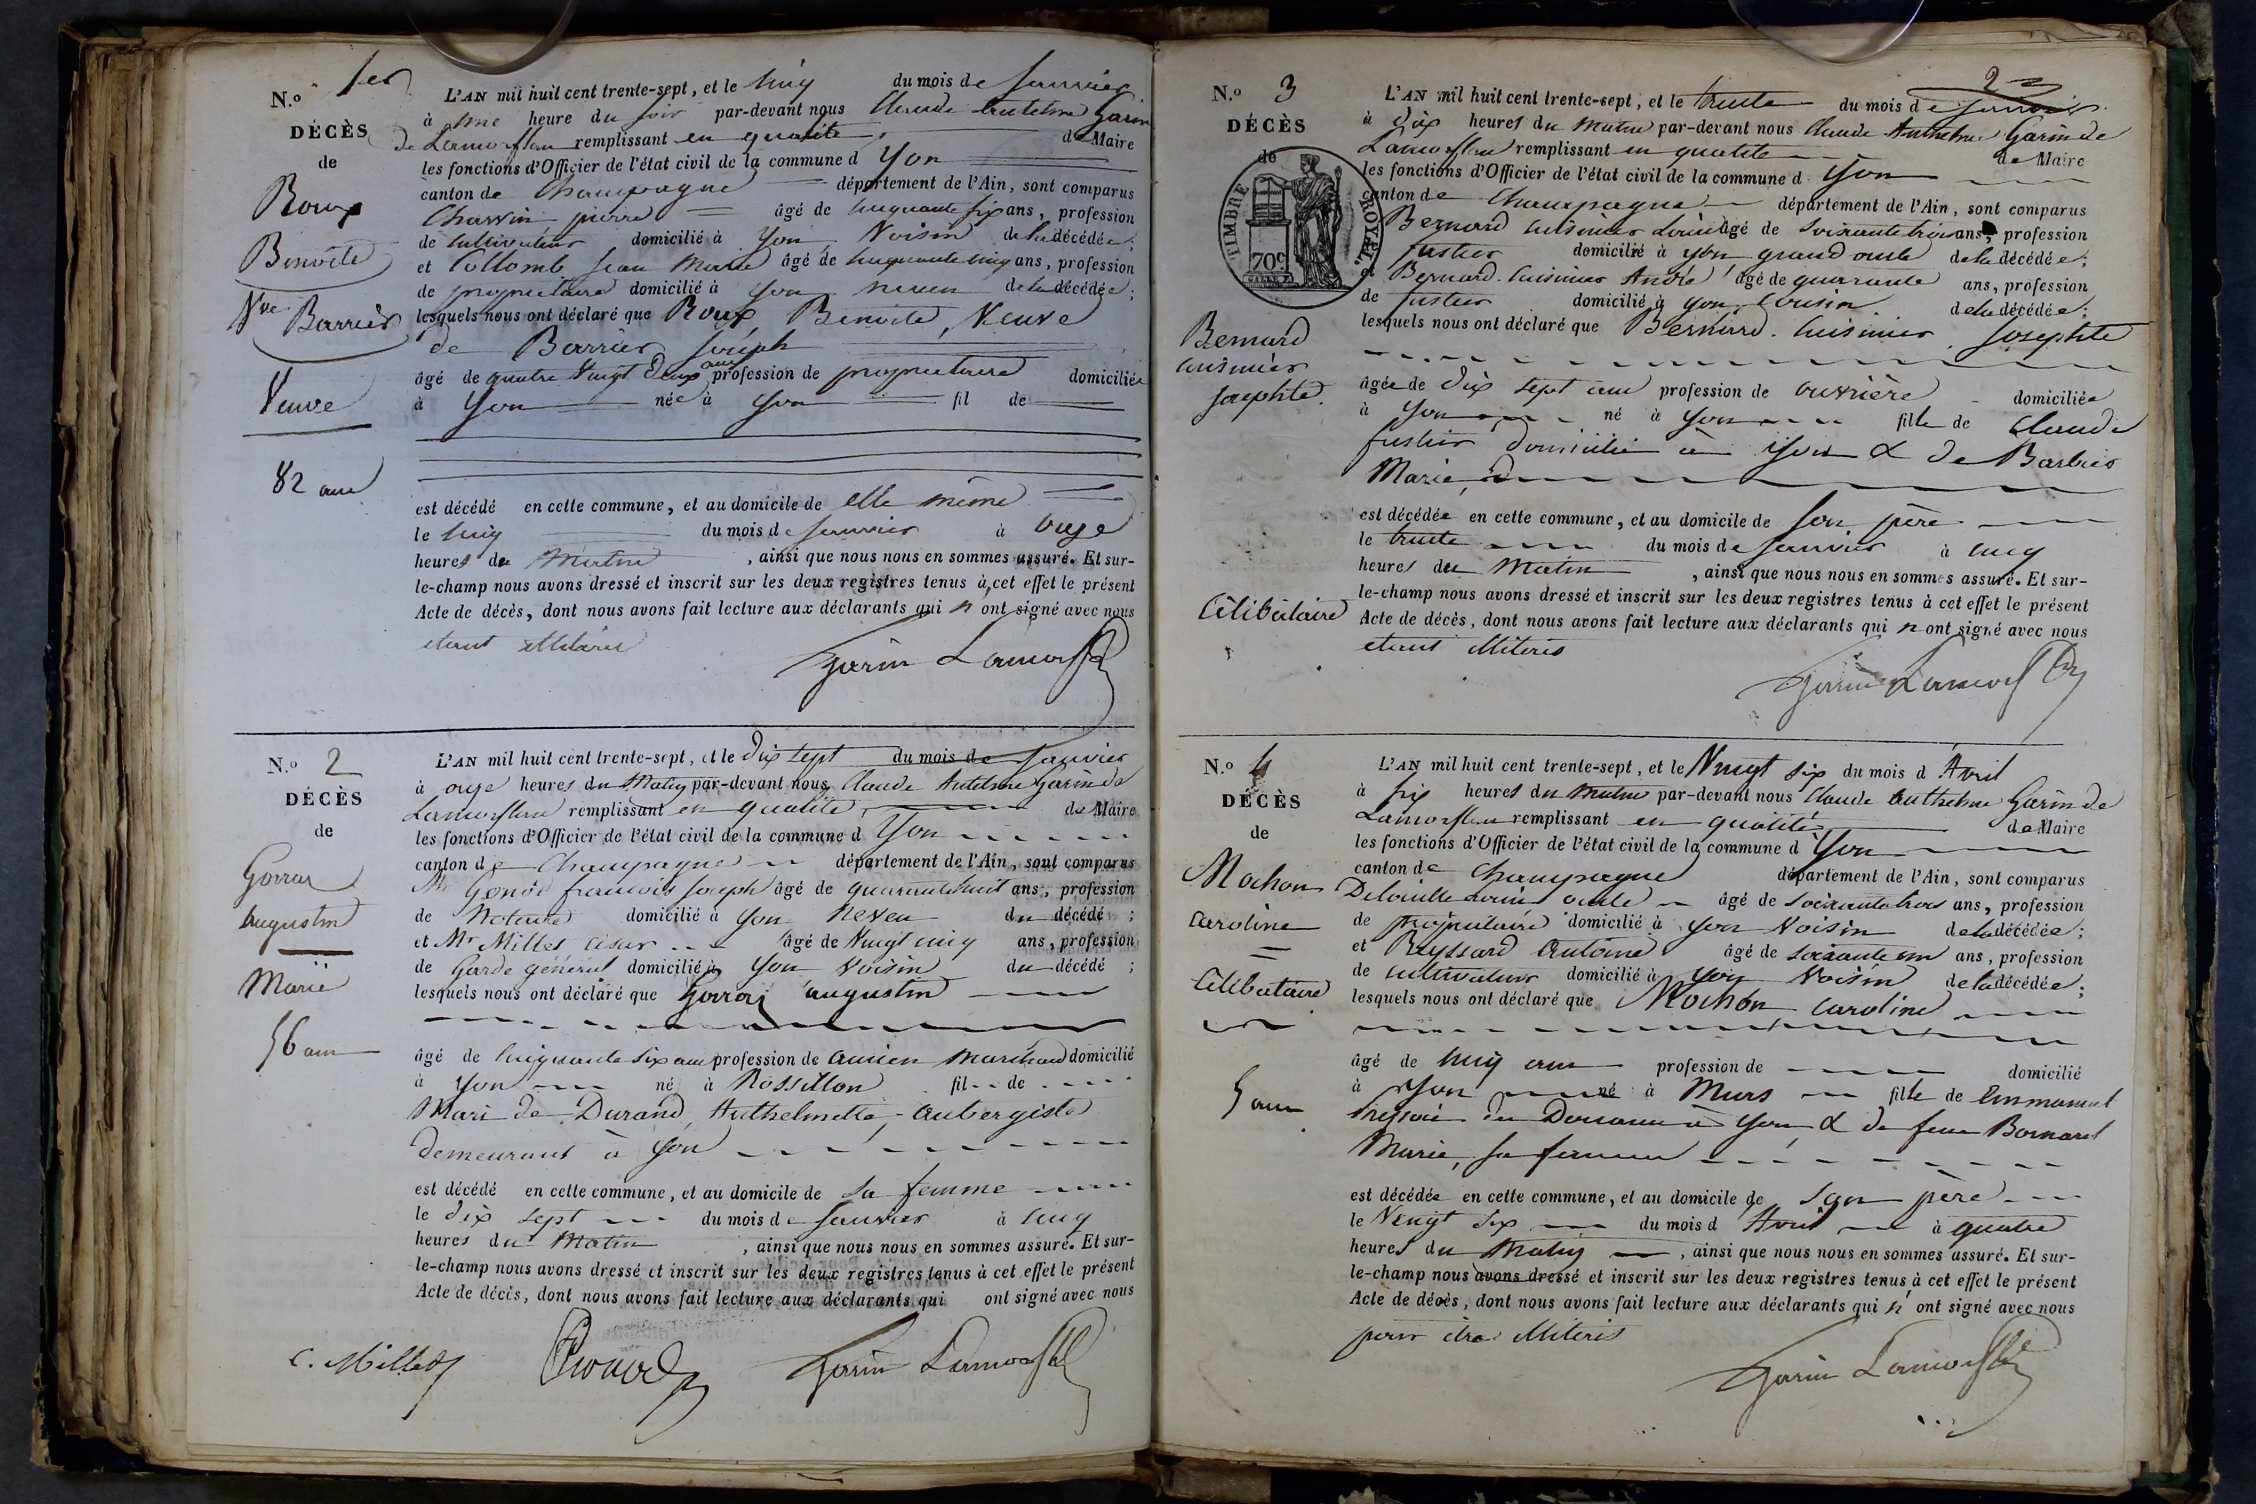 N.º 1er
DÉCÈS
de
Roux
Benoite
Vve Barrier
Veuve
82 ans
L'AN mil huit cent trente-sept, et le cinq du mois de Janvier
à une heure du soir par-devant nous Claude Anthelme Garin
de Lamorflan remplissant en qualité de Maire
les fonctions d'Officier de l'état civil de la commune d Yon
canton de Champagne département de l'Ain, sont comparus
Charvin pierre âgé de cinquante six ans, profession
de cultivateur domicilié à Yon Voisin de la décédée;
et Collomb Jean Marie âgé de cinquante cinq ans, profession
de propriétaire domicilié à Yon neveu de la décédée;
lesquels nous ont déclaré que Roux Benoite, Veuve
de Barrier Joseph
âgé de quatre Vingt deux ans profession de propriétaire domiciliée
à Yon née à Yon fil de
est décédé en cette commune, et au domicile de elle même
le cinq du mois de Janvier à onze
heures du Matin, ainsi que nous nous en sommes assuré. Et sur-
le-champ nous avons dressé et inscrit sur les deux registres tenus à cet effet le présent
Acte de décès, dont nous avons fait lecture aux déclarants qui n ont signé avec nous
etant illitérés
Garin Lamorfla
N.º 2
DÉCÈS
de
Gorraz
augustin
Marié
56 ans
L'AN mil huit cent trente-sept, et le Dix sept du mois de Janvier
à onze heures du Matin par-devant nous Claude Antelme Garin de
Lamorflan remplissant en qualité de Maire
les fonctions d'Officier de l'état civil de la commune d Yon
canton de Champagne département de l'Ain, sont comparus
Mr françois Joseph âgé de quarante huit ans, profession
de Notaire domicilié à Yon Neveu du décédé;
et Mr Millet César âgé de Vingt cinq ans, profession
de Garde général domicilié à Yon voisin du décédé;
lesquels nous ont déclaré que augustin
âgé de cinquante six ans profession de ancien marchand domicilié
à Yon né à Rossillon fil de
Mari de Durand Anthelmette, aubergiste
demeurant à Yon
est décédé en cette commune, et au domicile de sa femme
le dix sept du mois de Janvier à cinq
heures du Matin, ainsi que nous nous en sommes assuré. Et sur-
le-champ nous avons dressé et inscrit sur les deux registres tenus à cet effet le présent
Acte de décès, dont nous avons fait lecture aux déclarants qui ont signé avec nous
C. Millet Garin Lamorfla
2
N.º 3
DÉCÈS
de
TIMBRE ROYAL.
70c
Bernard
cuisinier
Josephte.
Célibataire
L'AN mil huit cent trente-sept, et le trente du mois de Janvier
à dix heures du matin par-devant nous Claude Anthelme Garin de
Lamorflan remplissant en qualité de Maire
les fonctions d'Officier de l'état civil de la commune d Yon
canton de Champagne département de l'Ain, sont comparus
Bernard cuisinier Louis âgé de soixante trois ans, profession
fustier domicilié à Yon grand oncle de la décédée;
et Bernard Cuisinier André âgé de quarante ans, profession
de fustier domicilié à Yon, Cousin de la décédée;
lesquels nous ont déclaré que Bernard Cuisinier Josephte
âgée de dix sept ans profession de ouvrière domiciliée
à Yon né à Yon fille de Claude
fustier domicilié à Yon & de Barbier
Marie
est décédée en cette commune, et au domicile de son père
le trente du mois de Janvier à cinq
heures du Matin, ainsi que nous nous en sommes assuré. Et sur-
le-champ nous avons dressé et inscrit sur les deux registres tenus à cet effet le présent
Acte de décès, dont nous avons fait lecture aux déclarants qui n ont signé avec nous
etant illiteris
Garin Lamorfla
N.º 4
DÉCÈS
de
Mochon
caroline
Célibataire
5 ans
L'AN mil huit cent trente-sept, et le Vingt six du mois d Avril
à six heures du matin par-devant nous Claude Anthelme Garin de
Lamorflan remplissant en qualité de Maire
les fonctions d'Officier de l'état civil de la commune d Yon
canton de Champagne département de l'Ain, sont comparus
Louis oncle âgé de soixante trois ans, profession
de propriétaire domicilié à Yon Voisin de la décédée;
et Reyssard Antoine âgé de soixante un ans, profession
de cultivateur domicilié à Yon Voisin de la décédée;
lesquels nous ont déclaré que Mochon caroline
âgé de cinq ans profession de domicilié
à Yon né à Murs fille de Emmanuel
du Douane à Yon & de feue Bornard
Marie, sa femme
est décédée en cette commune, et au domicile de son père
le Vingt six du mois d Avril à quatre
heures du Matin, ainsi que nous nous en sommes assuré. Et sur-
le-champ nous avons dressé et inscrit sur les deux registres tenus à cet effet le présent
Acte de décès, dont nous avons fait lecture aux déclarants qui n' ont signé avec nous
pour être illiteris
Garin Lamorfla